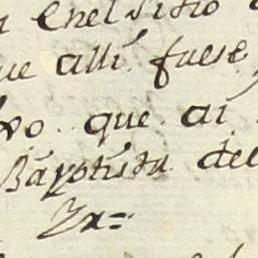 enel sitio
ue alli fuese
vo. que ai
Baptista del